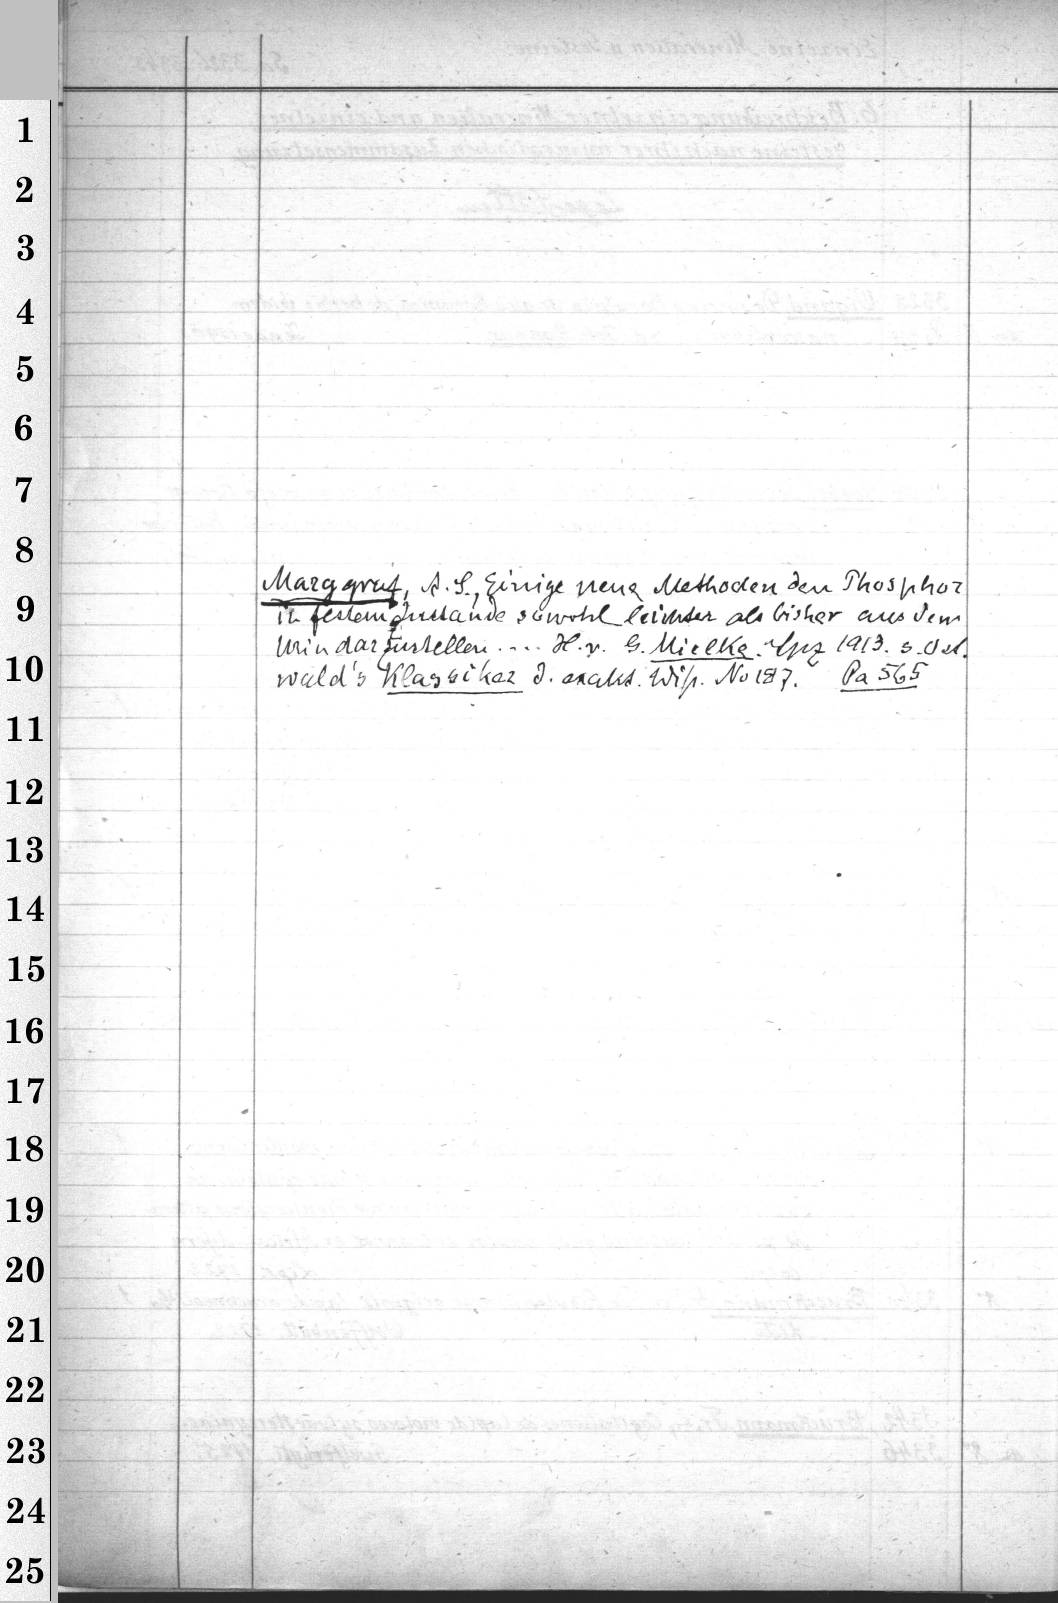 1
2
3
4
5
6
7
8
Marggraf, A. S., Einige neue Methoden den Phosphor
9
in festem Zustande sowohl leichter als bisher aus dem
Urin darzustellen .... H. v. G. Mielke. Lpz 1913. s. Ost-
10
wald's Klassiker d. exakt. Wiss. No 187. Pa 565
11
12
13
14
15
16
17
18
19
20
21
22
23
24
25